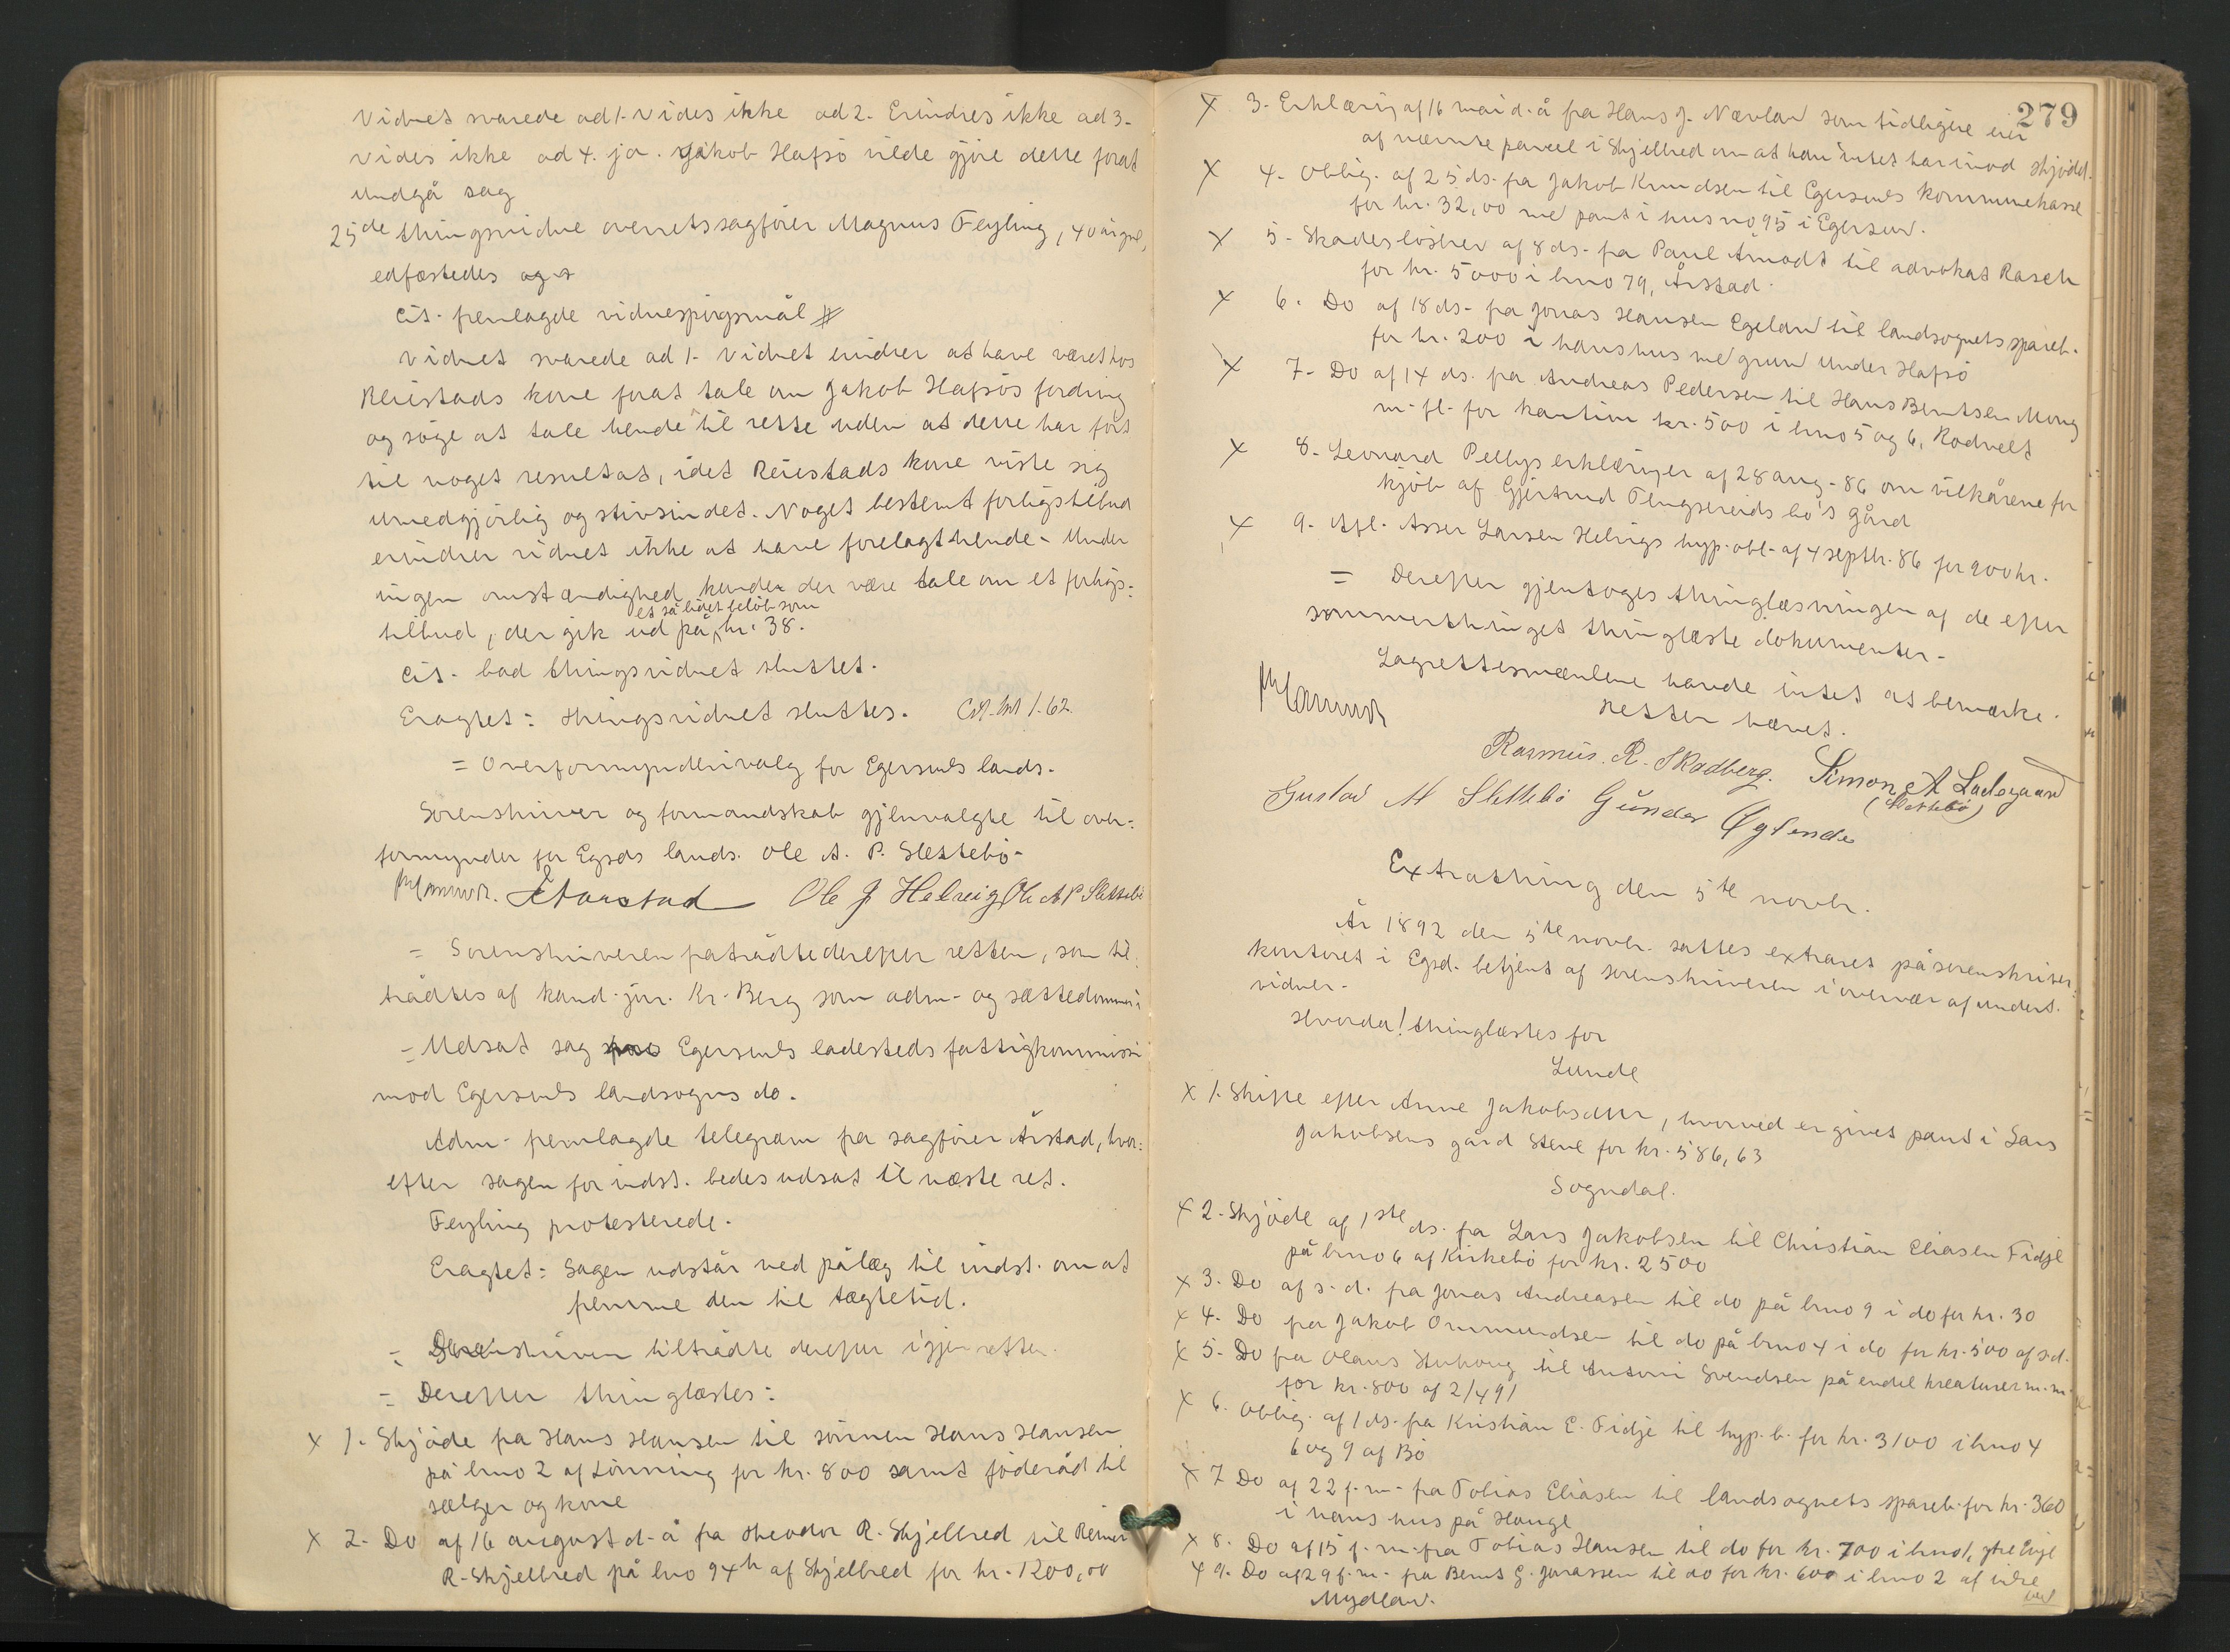 Vidnet svarede ad 1. Vides ikke ad 2. Erindres ikke ad 3.
vides ikke ad 4. ja. Jakob Hafsö vilde gjöre dette forat
undgå sag
25de thingsvidne overretssagförer Magnus Feyling, 40 år gml,
edfæstedes og
Cit. fremlagde vidnespörgsmål #
Vidnet svarede ad 1. Vidnet erindrer at have været hos
Reiestads kone forat tale om Jakob Hafsös fordring
og söge at tale hende til rette uden at dette har fört
til noget resultat, idet Reiestads kone viste sig
umedgjörlig og stivsindet. Noget bestemt forligstilbud
erindrer vidnet ikke at have forelagt hende. Under
ingen omstændighed kunde der være tale om et forligs-
et så lidet belöb som
tilbud, der gik ud på kr. 38.
Cit. bad thingsvidnet sluttet.
Eragtet: Thingsvidnet sluttes.
= Overformyndervalg for Egersunds lands.
Sorenskriver og formandskab gjenvalgte til over-
formynder for Egsds lands. Ole A. P. Slettebö.
Aarstad Ole J Helvig Ole A P Slettebö
= Sorenskriveren fratrådte derefter retten, som til-
trådtes af kand. jur. Kr. Berg som adm. og sættedommer
= Udsat sag Egersunds ladesteds fattigkommissi
mod Egersunds landsogns do.
Adm. fremlagde telegram fra sagförer Årstad, hvor-
efter sagen for indst. bedes udsat til næste ret.
Feyling protesterede.
Eragtet: Sagen udstår ved pålæg til indst. om at
fremme den til tægtetid.
= Sorenskriveren tiltrådte derefter igjen retten.
= Derefter thinglæstes:
x 1. Skjöde fra Hans Hansen til sönnen Hans Hansen
på brno 2 af Lönning for kr. 800 samt föderåd til
sælger og kone
x 2. Do af 16 august d. å fra Theodor R. Skjelbred til Reimer
R. Skjelbred på bno 94h af Skjelbred for kr. 1200,00
279
x 3. Erklæring af 16 mai d. å fra Hans J. Nævland som tidligere eier
af nævnte parcel i Skjelbred om at han intet har imod skjödet.
x 4. Oblig. af 25 ds. fra Jakob Knudsen til Egersunds kommunekasse
for kr. 32,00 med pant i hus no 95 i Egersund.
x 5. Skadeslösbrev af 8 ds. fra Paul Åmodt til advokat Rasch
for kr. 5000 i brno 79, Årstad.
x 6. Do af 18 ds. fra Jonas Hansen Egeland til landsognets spareb.
for kr. 200 i hans hus med grund under Hafsö
x 7. Do af 14 ds. fra Andreas Pedersen til Hans Berntsen Mong
m. fl. for kaution kr. 500 i brno 5 og 6, Rodvelt
x 8. Leonard Pellys erklæringer af 28 aug. 86 om vilkårene for
kjöb af Gjertrud Tengsereids bo's gård
x 9. Afl. Asser Larsen Helvigs hyp. obl. af 4 septbr. 86 for 900 kr.
= Derefter gjentoges thinglæsningen af de efter
sommerthinget thinglæste dokumenter.
Lagrettesmændene havde intet at bemærke.
Retten hævet.
Rasmus. R. Skadberg. Simon A Ladegaard
(Slettebö)
Gustav M Slettebö Gunder Öglende
Extrathing den 5te novbr.
År 1892 den 5te novbr. sattes extraret på sorenskriver-
kontoret i Egsd. betjent af sorenskriveren i overvær af underts.
vidner.
Hvorda! thinglæstes for
Lunde
x 1. Skifte efter Anne Jakobsdttr, hvorved er givet pant i Lars
Jakobsens gård Stene for kr. 586,63
Sogndal.
x 2. Skjöde af 1ste ds. fra Lars Jakobsen til Christian Eliasen Fidje
på brno 6 af Kirkebö for kr. 2500
x 3. Do af s. d. fra Jonas Andreasen til do på brno 9 i do for kr. 30
x 4. Do fra Jakob Ommundsen til do på brno 4 i do for kr. 500 af s.d.
x 5. Do fra Olaus Stuhaug til Antoni Svendsen på endel kreaturer m.m.
for kr. 800 af 2/4 91
x 6. Oblig. af 1 ds. fra Kristian E. Fidje til hyp. b. for kr. 3100 i brno 4
6 og 9 af Bö
x 7 Do af 22 f. m. fra Tobias Eliasen til landsognets spareb. for kr. 360
i hans hus på Hauge
x 8. Do af 15 f. m. fra Tobias Hansen til do for kr. 700 i brno 1, ytre Eige
x 9. Do af 29 f. m. fra Bernt G. Jonassen til do for kr. 600 i brno 2 af indre
Mydland.